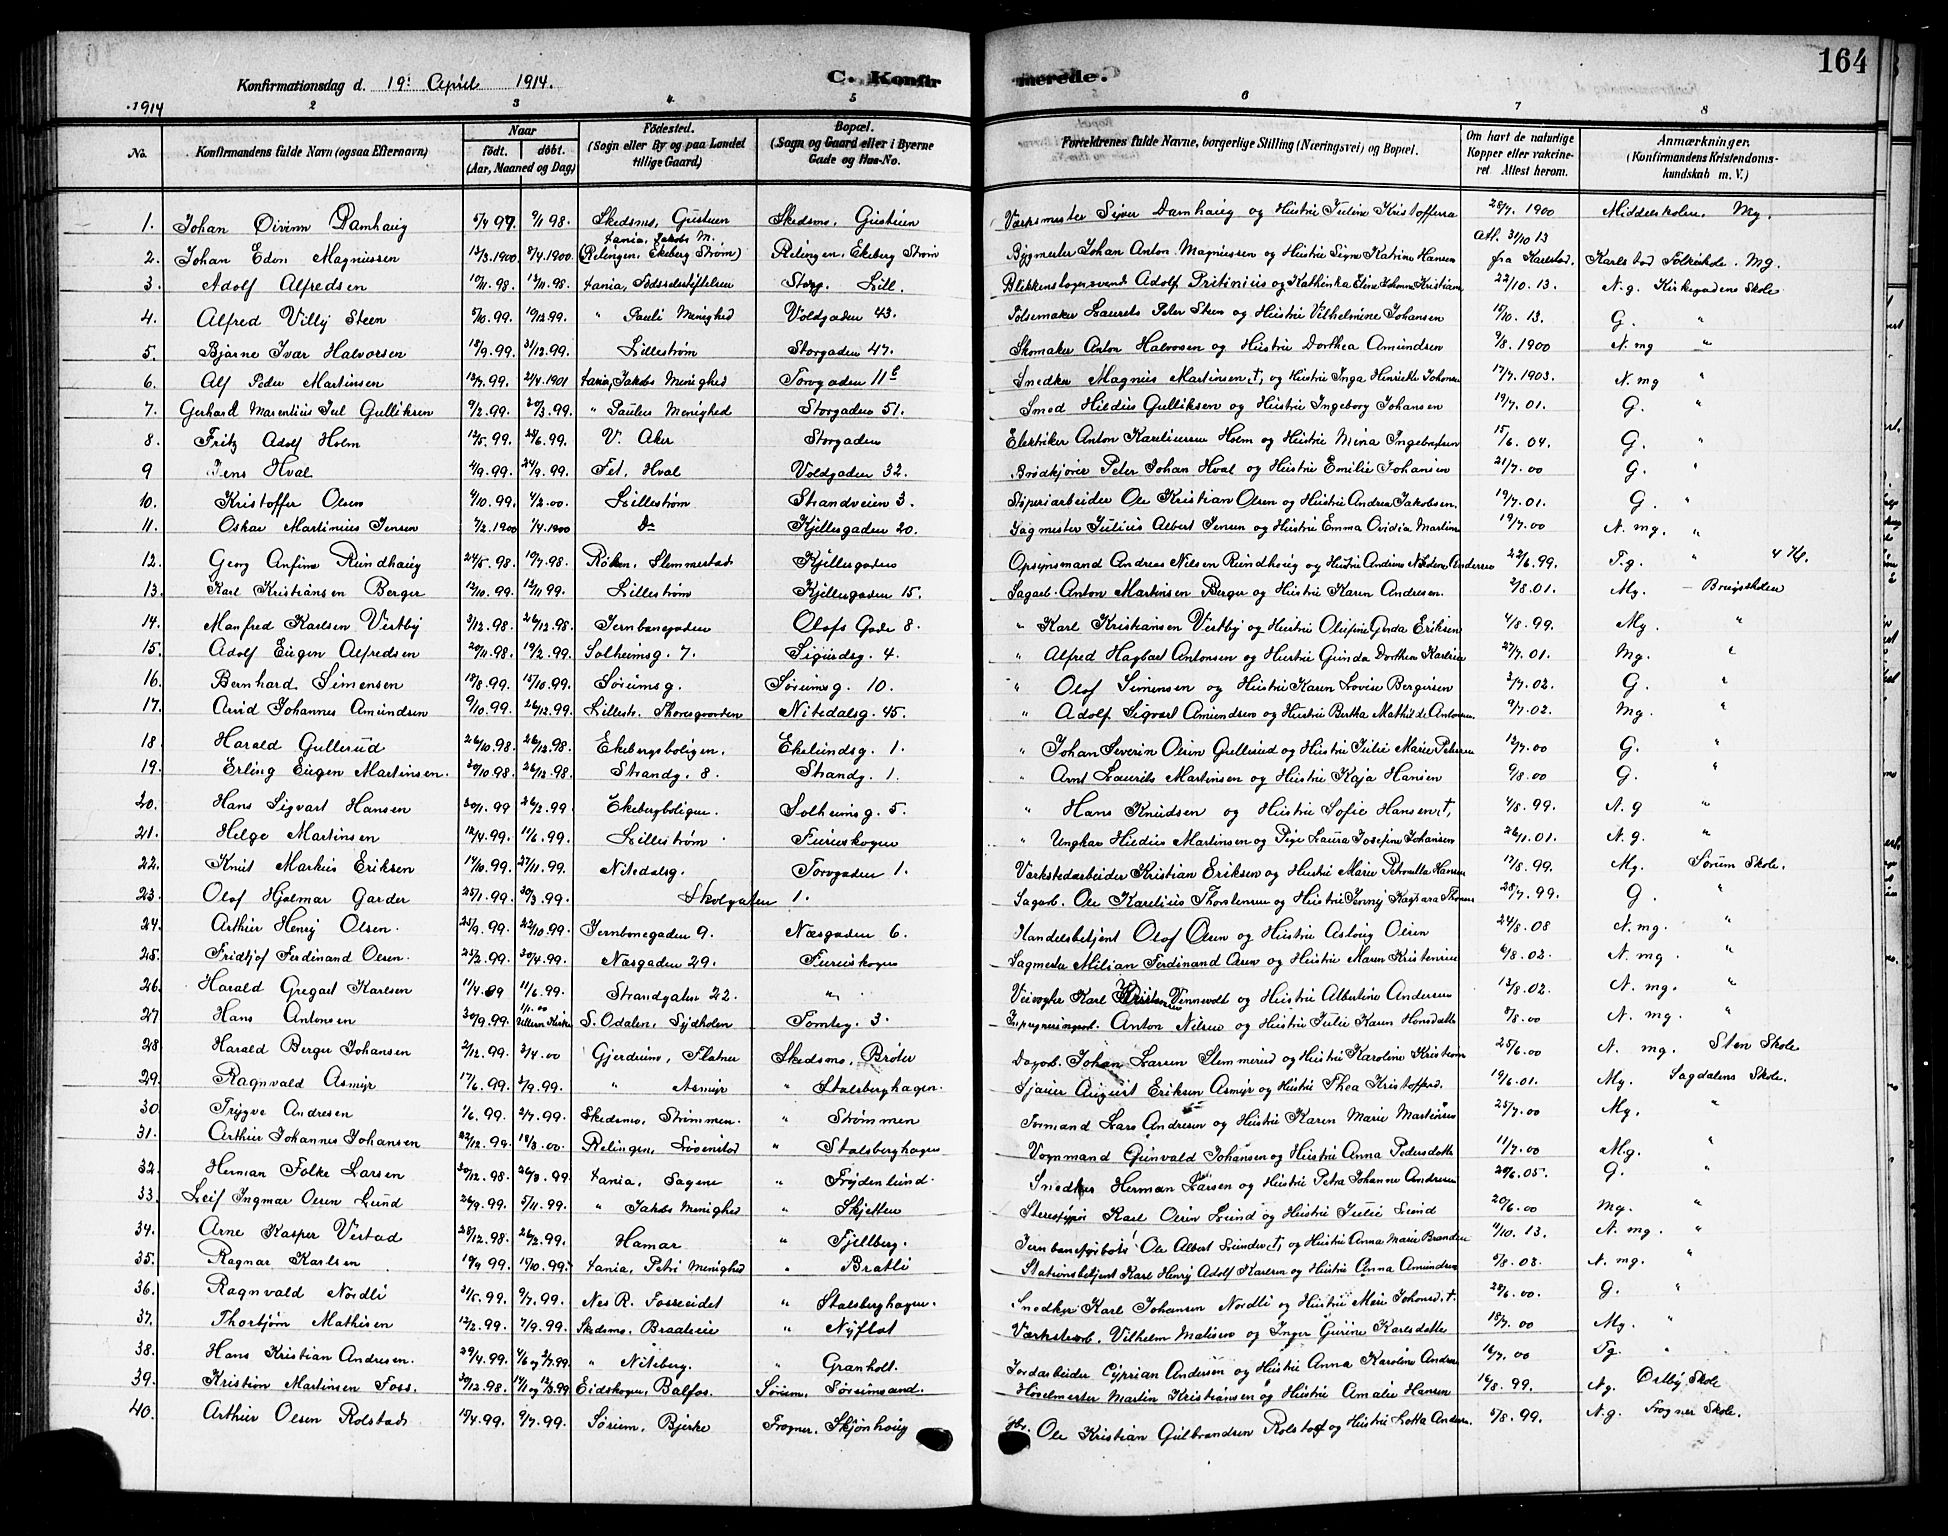 164
Konfirmationsdag d. 19. April 1914.
C. Konfirmerede.
1914 2 3 4 5 6 7 8
No. Konfirmandens fulde Navn (ogsaa Efternavn) Naar født. døbt. (Aar, Maaned og Dag) Fødested. (Sogn eller By og paa Landet tillige Gaard) Bopæl. (Sogn og Gaard eller i Byerne Gade og Hus-No. Forældrenes fulde Navne, borgerlige Stilling (Næringsvei) og Bopæl. Om havt de naturlige Kopper eller vakcineret. Attest herom. Anmærkninger. (Konfirmandens Kristendomskundskab m. V.)
1. Johan Oivinn Damhaug 9/1 98. Skedsmo, Værksmester Syver Damhaug og Hustru Juline 28/7. 1900 Middelskolen. Mg.
2. Johan Edon Magnussen 13/3.1900 8/4.1900. (Relingen, Ekeberg Strøm) Relingen, Ekeberg Strøm Bygmester Johan Anton Magnussen og Hustru Signe Katrine Hansen Att. 31/10 13 fra Karlstad. Karlstad Folkeskole. Mg.
3. Adolf Alfredsen 10/11. 98. 13/11. 98. Storg. Lill. Adolf og Kathinka 22/10. 13. N.g. Kirkegadens Skole
4. Alfred Villy Steen 5/10. 99. 10/12. 99. " Pauli Menighed Voldgaden 43. Pølsemaker Laurits Peter Steen og Hustru Vilhelmine Johansen 15/10. 13. G. "
5. Bjarne Ivar Halvorsen 18/9. 99. 31/12. 99. Lillestrøm Storgaden 47. Skomaker Anton Halvosen og Hustru Dorthea Amundsen 9/8. 1900 N. mg "
6. Alf Peder Martinsen 13/7. 99. 21/4. 1901 Jakobs Menighed Torvgaden 11 Snedker Magnus Martinsen, †, og Hustru Inga Henriette 17/7. 1903. N. mg "
7. Gerhard Marentius Jul Gulliksen 9/2. 99. 20/3. 99. " Paulus Menighed Storgaden 51. Smed Hildus Gulliksen og Hustru Ingeborg Johansen 19/7. 01. G. "
8. Fritz Adolf Holm 12/5. 99. 24/6. 99. V. Aker Storgaden Elektriker Anton Holm og Hustru Mina Ingebretsen 15/6. 04. G. "
9 Jens Hval 4/9. 99. 24/9. 99. Fet, Hval Voldgaden 32. Brødkjører Peter Johan Hval og Hustru Emilie Johansen 21/7. 00 G. "
10. Kristoffer Olsen 9/10. 99. 4/2. 00. Lillestrøm Strandveien 3. Ole Kristian Olsen og Hustru Andrea Jakobsen. 19/7. 01. G. "
11. Oskar Martinius Jensen 7/2. 1900 1/4. 1900 Do Kjellergaden 20. Sagmester Julius Albert Jensen og Hustru Emma Ovidia 19/7. 00 N. mg. "
12. Georg Anfinn Rundhaug 24/5. 98. 10/7. 98. Røken, Slemmestad Kjellergaden Opsynsmand Andreas Nilsen Rundhaug og Hustru 22/6. 99. T.g. "
13. Karl Kristiansen Berger 12/10. 99. 12/11. 99 Lillestrøm Kjellergaden 15. Sagarb. Anton Martinsen Berger og Hustru Karen Andresen. 2/8. 01. Mg.
14. Manfred Karlsen Vestby 3/12. 98. 26/12. 98. Jernbanegaden Olafs Gade 8. " Karl Kristiansen Vestby og Hustru Olufine Eriksen 4/8. 99. Mg. "
15. Adolf Eugen Alfredsen 20/11. 98. 19/2. 99. Solheimsg. 7. Sigurdsg. 4. " Alfred Hagbart Antonsen og Hustru Gunda Dorthea 27/7. 01. Mg. "
16. Bernhard Simensen 18/8. 99. 15/10. 99. Sørumsg. Sørumsg. 10. " Olof Simensen og Hustru Karen Lovise Bergersen 3/7. 02. G. "
17. Arvid Johannes Amundsen 9/10. 99. 26/12. 99. Nitedalsg. 45. " Adolf Sigvart Amundsen og Hustru Bertha Mathilde 9/7. 02. Mg. "
18. Harald Gullerud 26/10. 98. 26/12. 98. Ekebergsboligen. Ekelundsg. 1. " Johan Severin Olsen Gullerud og Hustru Julie Marie 12/7. 00 G. "
19. Erling Eugen Martinsen. 30/10. 98. 26/12. 98. Strandg. 8. Strandg. 1. " Arnt Laurits Martinsen og Hustru Kaja Hansen 9/8. 00 G. "
20. Hans Sigvart Hansen 30/1. 99. 26/2. 99. Ekebergboligen. Solheimsg. 5. " Hans Knudsen og Hustru Sofie Hansen †, 4/8. 99. N. g "
21. Helge Martinsen 12/4. 99. 11/6. 99. Lillestrøm Furuskogen " Ungkar Hildus Martinsen og Pige Laura Josefine Johansen 26/1. 01. N. g. "
22. Knut Markus Eriksen 14/10. 99. 27/11. 99. Nitedalsg. Torvgaden 1. Værkstedarbeider Kristian Eriksen og Hustru Marie 17/8. 99. Mg. Sørum Skole.
23. Olaf Hjalmar Garder 25/1. 99. 30/3. 99. Skolegaten 1. Sagarb. Ole Karelius og Hustru Jenny 28/7. 99. G. "
24. Arthur Henry Olsen. 25/9. 99. 22/10. 99. Jernbanegaden 9. Næsgaden 6. Handelsbetjent Olof Olsen og Hustru Aslaug Olsen 24/8. 08 N. mg. "
25. Fridtjof Ferdinand Olsen. 25/2. 99. 30/4. 99. Næsgaden 29. Furuskogen Sagmester Milian Ferdinand Olsen og Hustru Maren 6/8. 02. N. mg. "
26. Harald Gregart Karlsen 11/4. 99 11/6. 99. Strandgaten 22. " Veivogter Karl og Hustru Albertine Andersen 13/8. 02. N. mg. "
27 Hans Antonsen 30/9. 99. 1/1. 00 Ullern Kirke S. Odalen, Sydholen Tomteg. 3. Anton Nilsen og Hustru Julie Karen 8/8. 00 N. mg. "
28 Harald Berger Johansen 2/12. 99. 3/4. 00 Gjerdrum, Flatner Skedsmo, Brøter Dagarb. Johan Larsen Slemmerud og Hustru Karoline 25/6. 00 N. mg. Sten Skole
29. Ragnvald Asmyr 17/6. 99. 3/9. 99. " Asmyr " Stalsberghagen. August Eriksen Asmyr og Hustru Thea Kristoffersd. 19/6. 01. Mg. Sagdalens Skole.
30. Trygve Andresen 1/6. 99. 2/7. 99. Skedsmo, Strømmen. " Strømmen Formand Lars Andresen og Hustru Karen Marie Martinsen 25/7. 00 Mg. "
31. Arthur Johannes Johansen 22/12. 99. 18/3. 00. Relingen, " Stalsberghagen Vognmand Gunvald Johansen og Hustru Anna Pedersdatter 11/7. 00 Mg. "
32. Herman Folke Larsen 30/12. 98. 26/3. 99. Sagene " Frydenlund. Snedker Herman Larsen og Hustru Petra Johanne Andersen 20/6. 05. G. "
33. Leif Ingmar Olsen Lund 26/9. 99. 5/11. 99. " Jakobs Menighed " Skjetten Karl Olsen Lund og Hustru Julie Lund 20/6. 00 Mg. "
34. Arne Kasper Vestad 28/12. 98. 26/2. 99. Hamar " Fjellberg. Ole Albert †, og Hustru Anna Marie 4/10. 13. N. mg. "
35. Ragnar Karlsen 19/4. 99. 15/10. 99. Petri Menighed " Bratli Stationsbetjent Karl Henry Adolf Karlsen og Hustru Anna Amundsen 5/8. 03. N. mg. "
36. Ragnvald Nordli 31/5. 99. 9/7. 99. Nes R. Fosseidet " Stalsberghagen. Snedker Karl Johansen Nordli og Hustru Marie Johansd. †. 28/6. 00. G. "
37. Thorbjørn Mathisen 12/2. 99. 7/9. 99. Skedsmo, " Nyflot Værkstedarb. Vilhelm Matisen og Inger Gurine Karlsdatter 18/7. 00 Mg. "
38. Hans Kristian Andresen. 29/4. 99. 4/6 og 2/7.99. " Niteberg. " Granholt. Jordarbeider Cyprian Andersen og Hustru Anna Karoline 16/7. 00 Tg. "
39. Kristian Martinsen Foss. 30/12. 98. Eidskogen, Balfos. Sørum, Sørumsand. Høvelmester Martin Kristiansen og Hustru Amalie Hansen 16/8. 99. Ng. Ørlby Skole
40. Arthur Olsen Rolstad 15/4. 99. 9/7. 99. Sørum, Bjerke Frogner, Skjønhaug Gbr. Ole Kristian Gulbrandsen Rolstad og Hustru Lotta 5/8. 99. N.g. Frogner Skole.